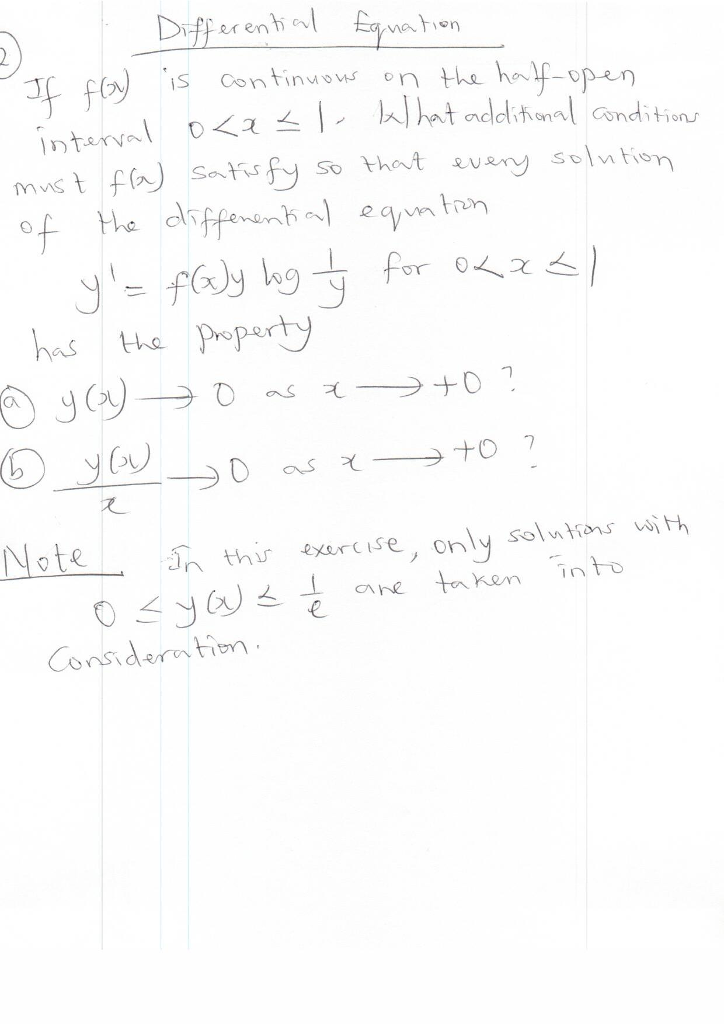 Differential Equation
2
If f(x) is continuous on the half-open
interval 0<x ≤ 1. What additional conditions
must f(x) satisfy so that every solution
of the differential equation
y' = f(x)y log 1/y for 0<x≤1
has the property
(a) y(x) → 0 as x → +0 ?
(b) y(x)/x → 0 as x → +0 ?
Note In this exercise, only solutions with
0 ≤ y(x) ≤ 1/e are taken into
Consideration.